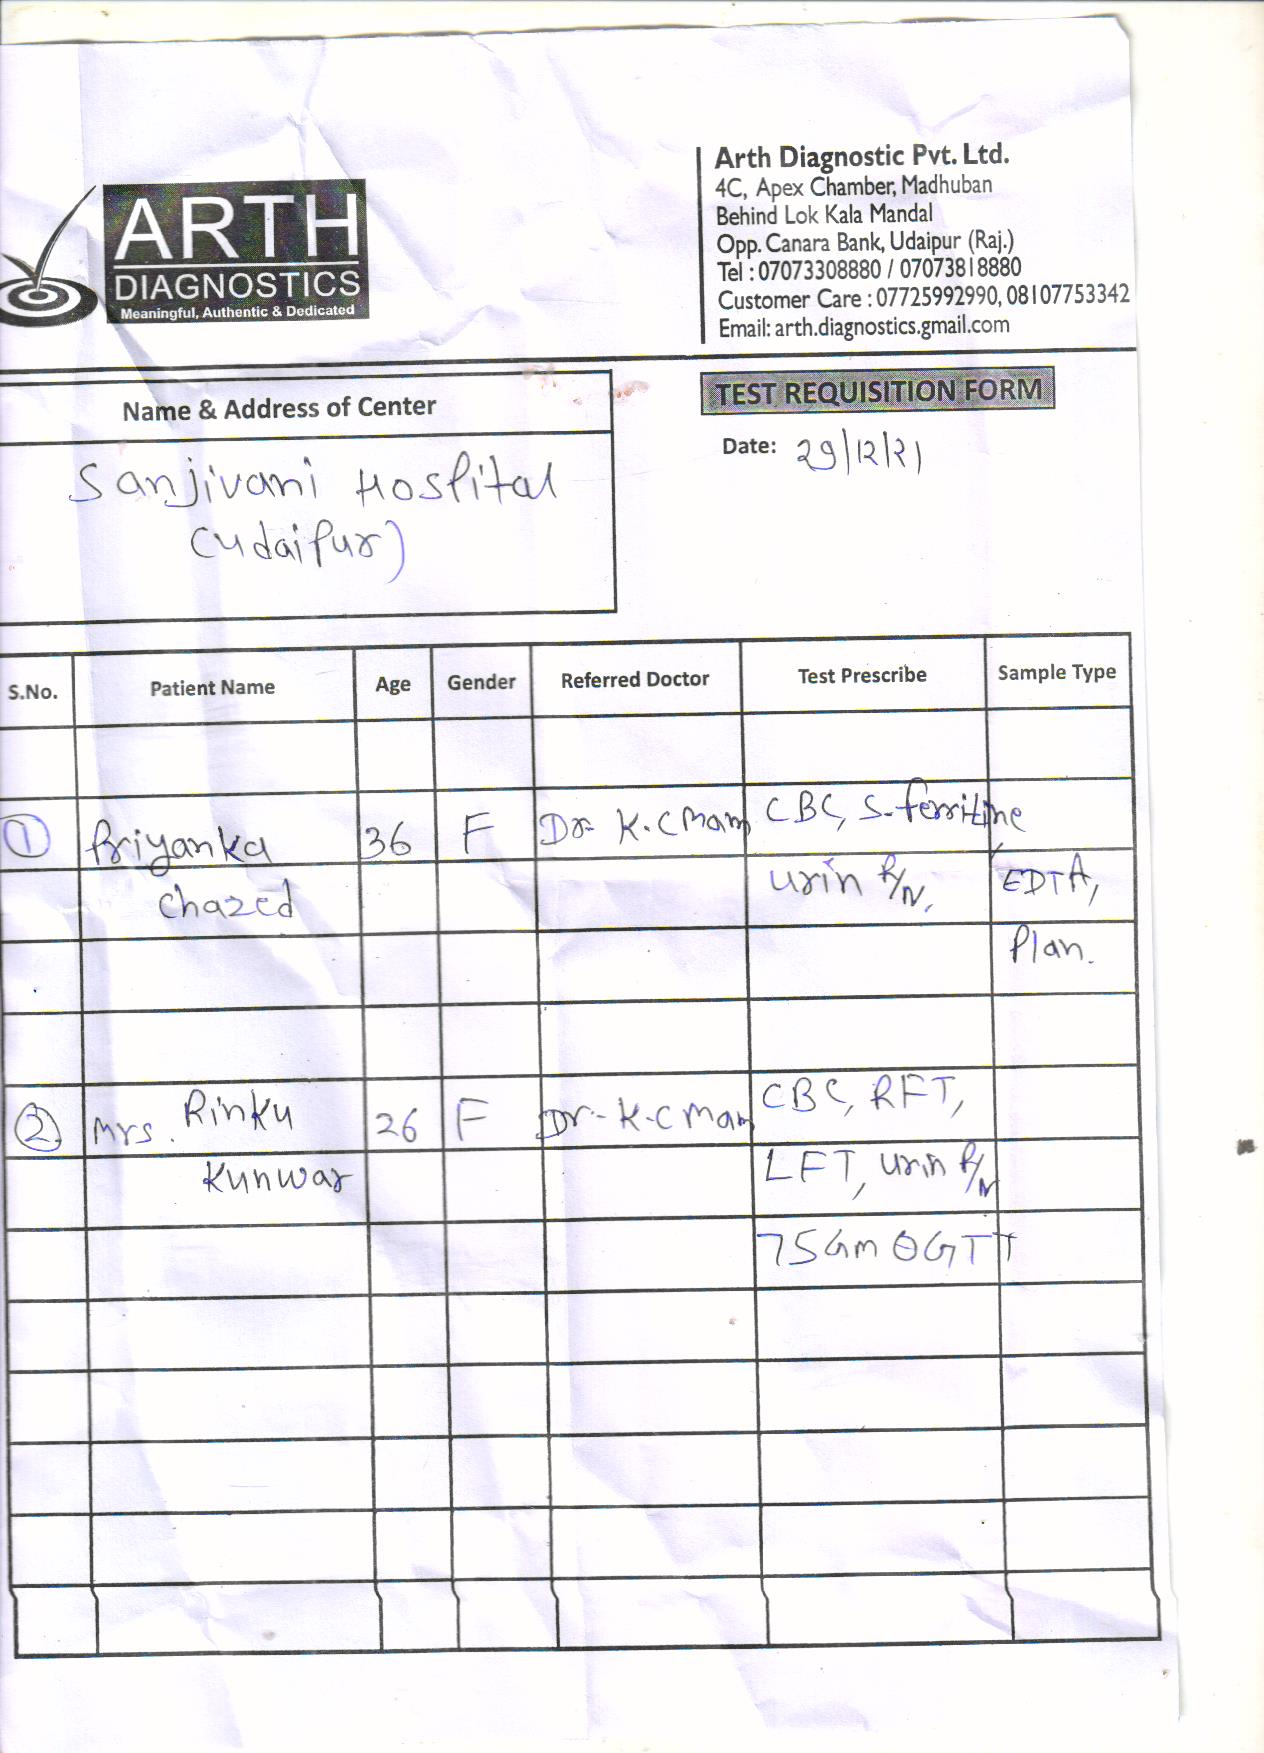 ARTH
DIAGNOSTICS
Meaningful, Authentic & Dedicated
Arth Diagnostic Pvt. Ltd.
4C, Apex Chamber, Madhuban
Behind Lok Kala Mandal
Opp. Canara Bank, Udaipur (Raj.)
Tel : 07073308880 / 07073818880
Customer Care : 07725992990, 08107753342
Email: arth.diagnostics.gmail.com
Name & Address of Center
TEST REQUISITION FORM
Date: 29/12/21
Sanjivani Hospital
(Udaipur)
S.No. Patient Name Age Gender Referred Doctor Test Prescribe Sample Type
1 Priyanka 36 F Dr- K.C Mam CBC, S-ferritine
urin R/N, EDTA,
Plan.
2 Mrs. Rinku 26 F Dr-- K.C Mam CBC, RFT,
Kunwar LFT, urin R/N
75Gm OGTT